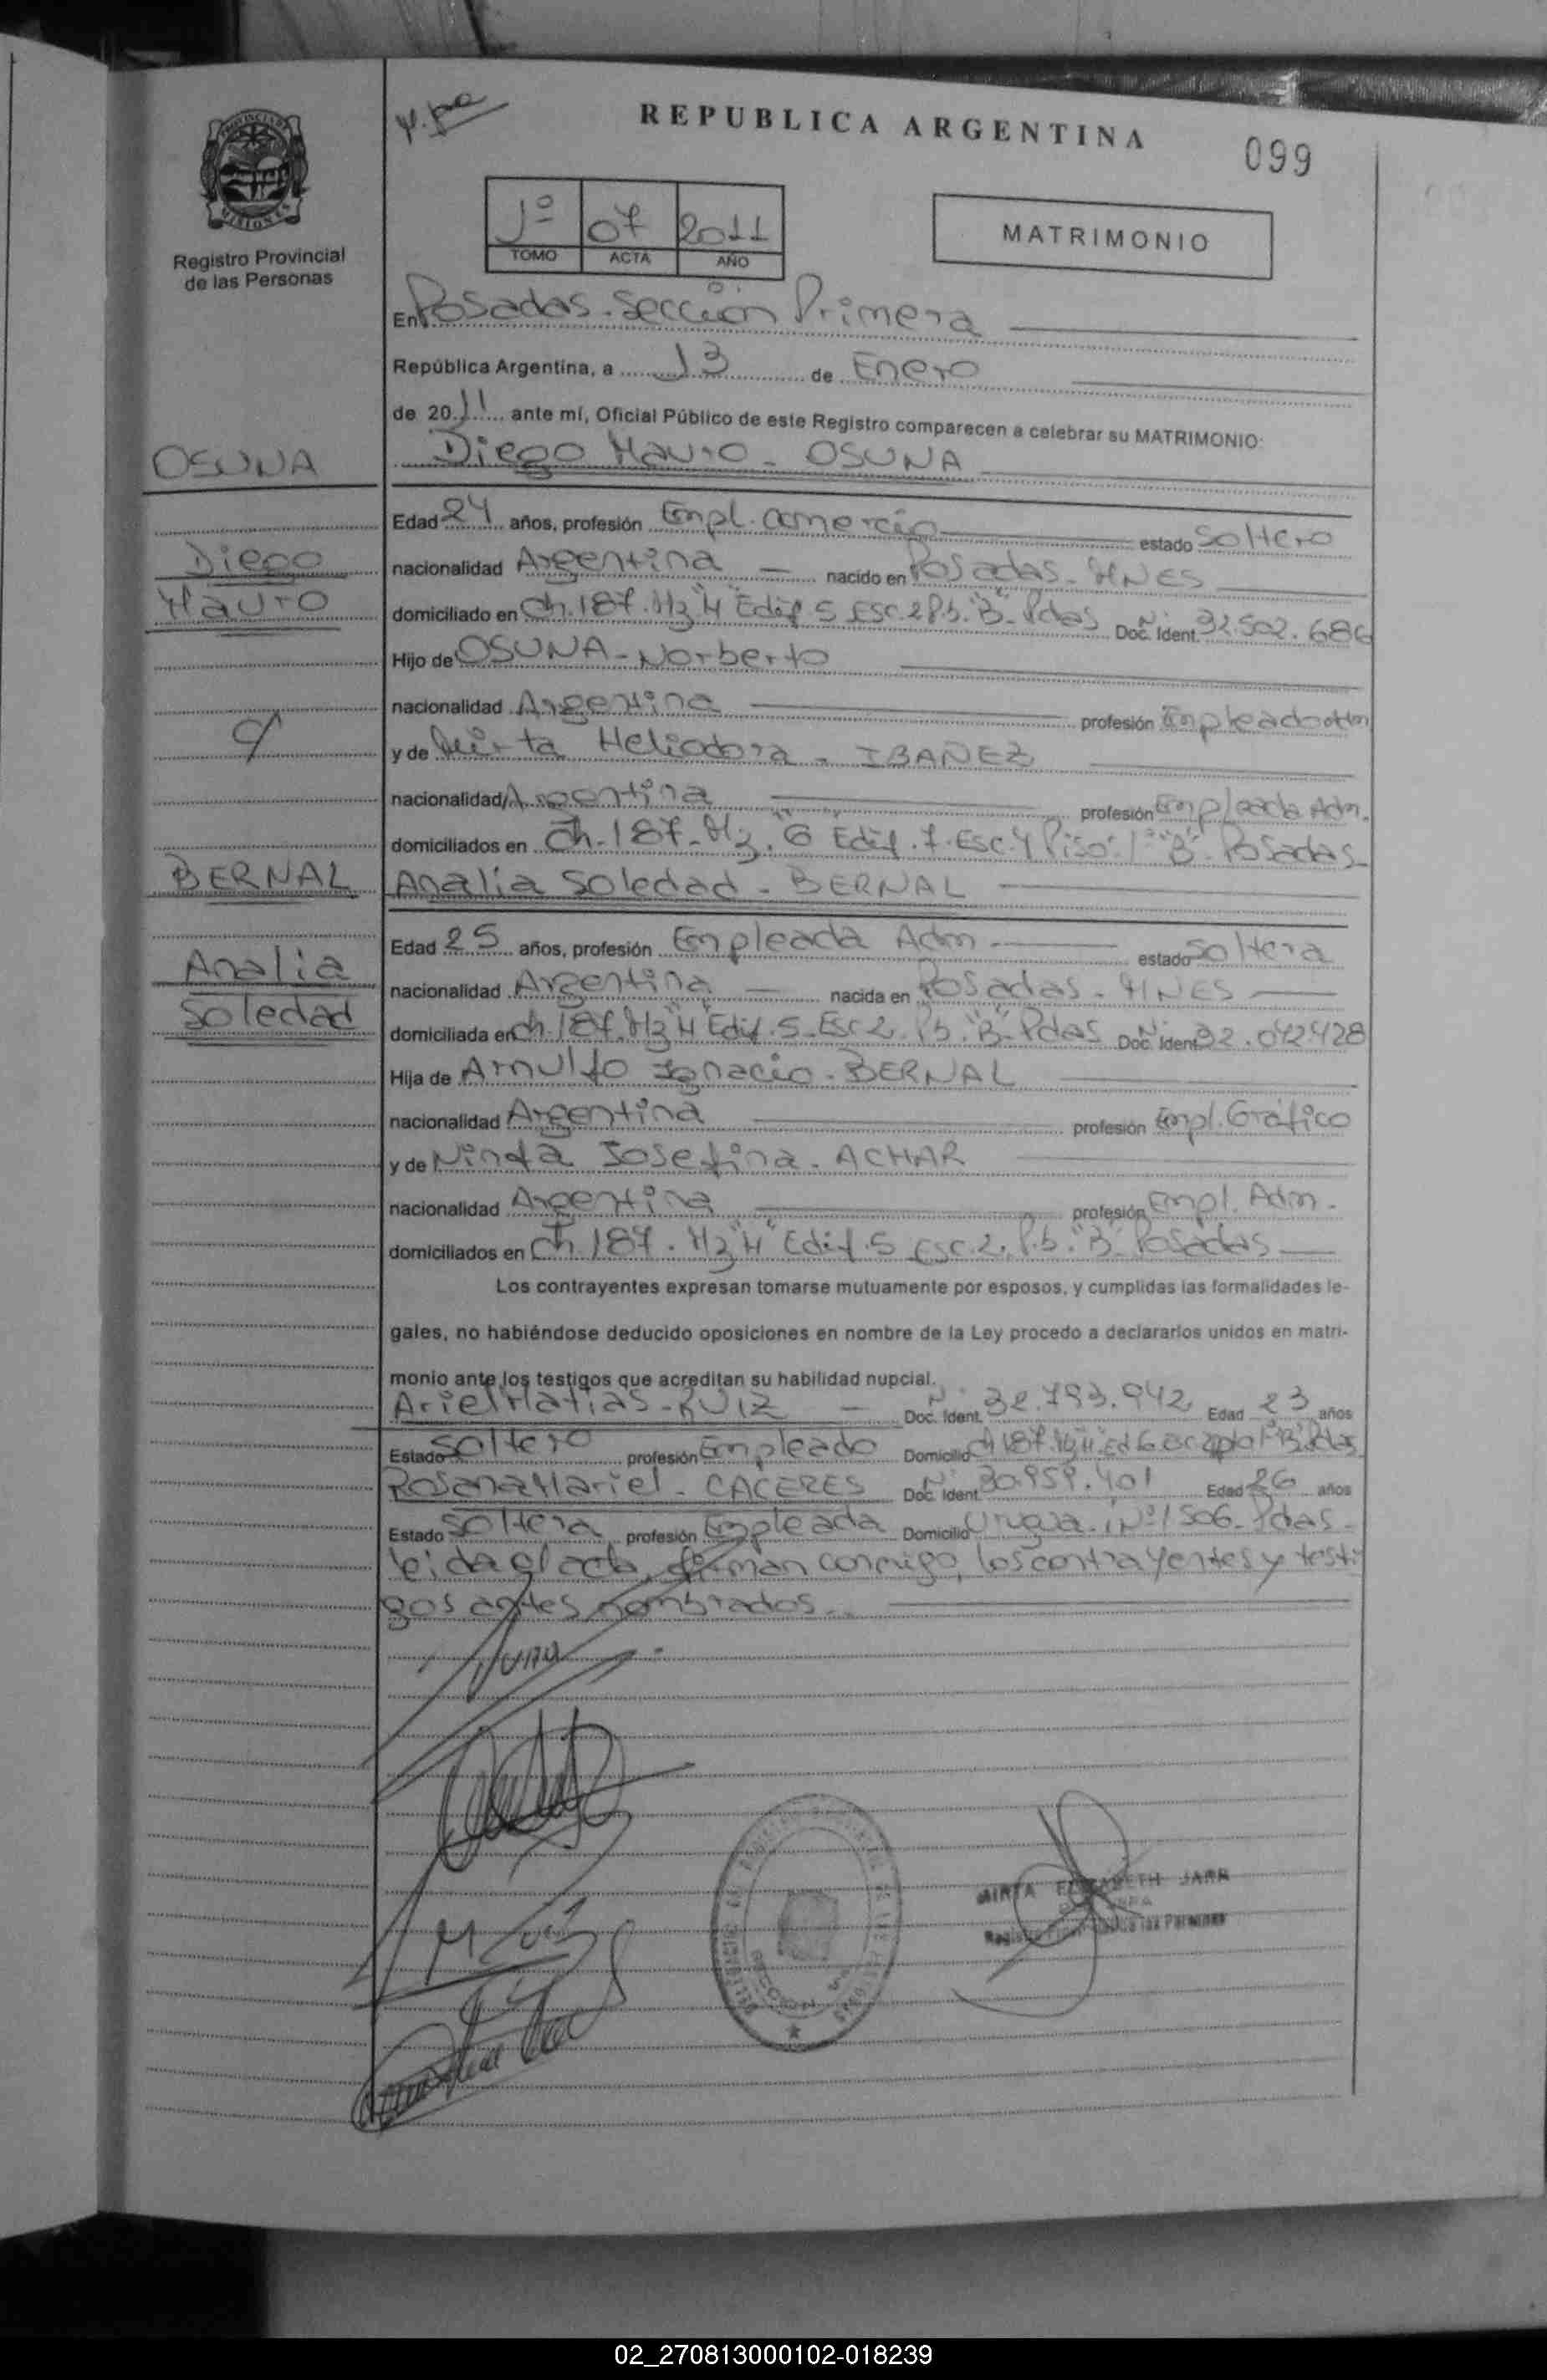 REPUBLICA ARGENTINA
099
PROVINCIA DE
MISIONES
Registro Provincial
de las Personas
1º 07 2011
TOMO ACTA AÑO
MATRIMONIO
En Posadas - Sección Primera
República Argentina, a 13 de Enero
de 2011 ante mí, Oficial Público de este Registro comparecen a celebrar su MATRIMONIO:
OSUNA
Diego Mauro - OSUNA
Edad 24 años, profesión Empl. comercio estado Soltero
Diego
nacionalidad Argentina nacido en Posadas - MNES
Mauro
domiciliado en Ch. 187. Mz "H" Edif 5 Esc. 2 Pb. "B" - Pdas Doc. Ident. 32.502.686
Hijo de OSUNA - Norberto
nacionalidad Argentina profesión Empleado Adm
y de Mirta Heliodora - IBAÑEZ
nacionalidad Argentina profesión Empleada Adm.
domiciliados en Ch - 187 - Mz. "G" Edif. 7. Esc. 4 Piso: 1º "B" - Posadas
BERNAL
Analia Soledad - BERNAL
Edad 25 años, profesión Empleada Adm estado Soltera
Analia
nacionalidad Argentina nacida en Posadas - MNES
Soledad
domiciliada en Ch. 187. Mz "H" Edif. 5 - Esc 2. Pb. "B" - Pdas Doc. Ident. 32.042.428
Hija de Arnulfo Ignacio - BERNAL
nacionalidad Argentina profesión Empl. Gráfico
y de Ninfa Josefina - ACHAR
nacionalidad Argentina profesión Empl. Adm.
domiciliados en Ch 187. Mz "H" Edif. 5 Esc. 2. P.b. "B" Posadas
Los contrayentes expresan tomarse mutuamente por esposos, y cumplidas las formalidades le-
gales, no habiéndose deducido oposiciones en nombre de la Ley procedo a declararlos unidos en matri-
monio ante los testigos que acreditan su habilidad nupcial.
Ariel Matias - RUIZ Doc. Ident. 32.793.942 Edad 23 años
Estado Soltero profesión Empleado Domicilio Ch 187. Mz "H" Ed 6 esc 2 Pdas
Rosana Mariel - CACERES Doc. Ident. 30.959.401 Edad 26 años
Estado Soltera profesión Empleada Domicilio Nº 1506 - Pdas -
leida el acta, firman conmigo, los contrayentes y testi
gos antes nombrados.
MIRTA ELIZABETH JARA
las Personas
02_270813000102-018239